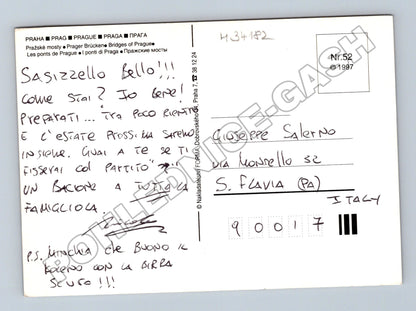 PRAHA ■ PRAG ■ PRAGUE ■ PRAGA ■ ПРАГА
Pražské mosty ■ Prager Brücken ■ Bridges of Prague
Les ponts de Prague ■ I ponti di Praga ■ Пражские мосты
SASIZZELLO BELLO!!!
COME STAI? IO BENE!
PREPARATI... TRA POCO RIENTRO
E L'ESTATE PROSSIMA SAREMO
INSIEME. GUAI A TE SE TI
FISSERAI COL PARTITO
UN BACIONE A TUTTA LA
FAMIGLIOLA
P.S. MINCHIA CHE BUONO IL
CON LA BIRRA
!!!
Praha 7, ☎ 38 12 24
434182
Nr. 52
© 1997
GIUSEPPE SALERNO
VIA MONDELLO 52
S. FLAVIA (PA)
ITALY
90017
POHLEDNICE-GASH